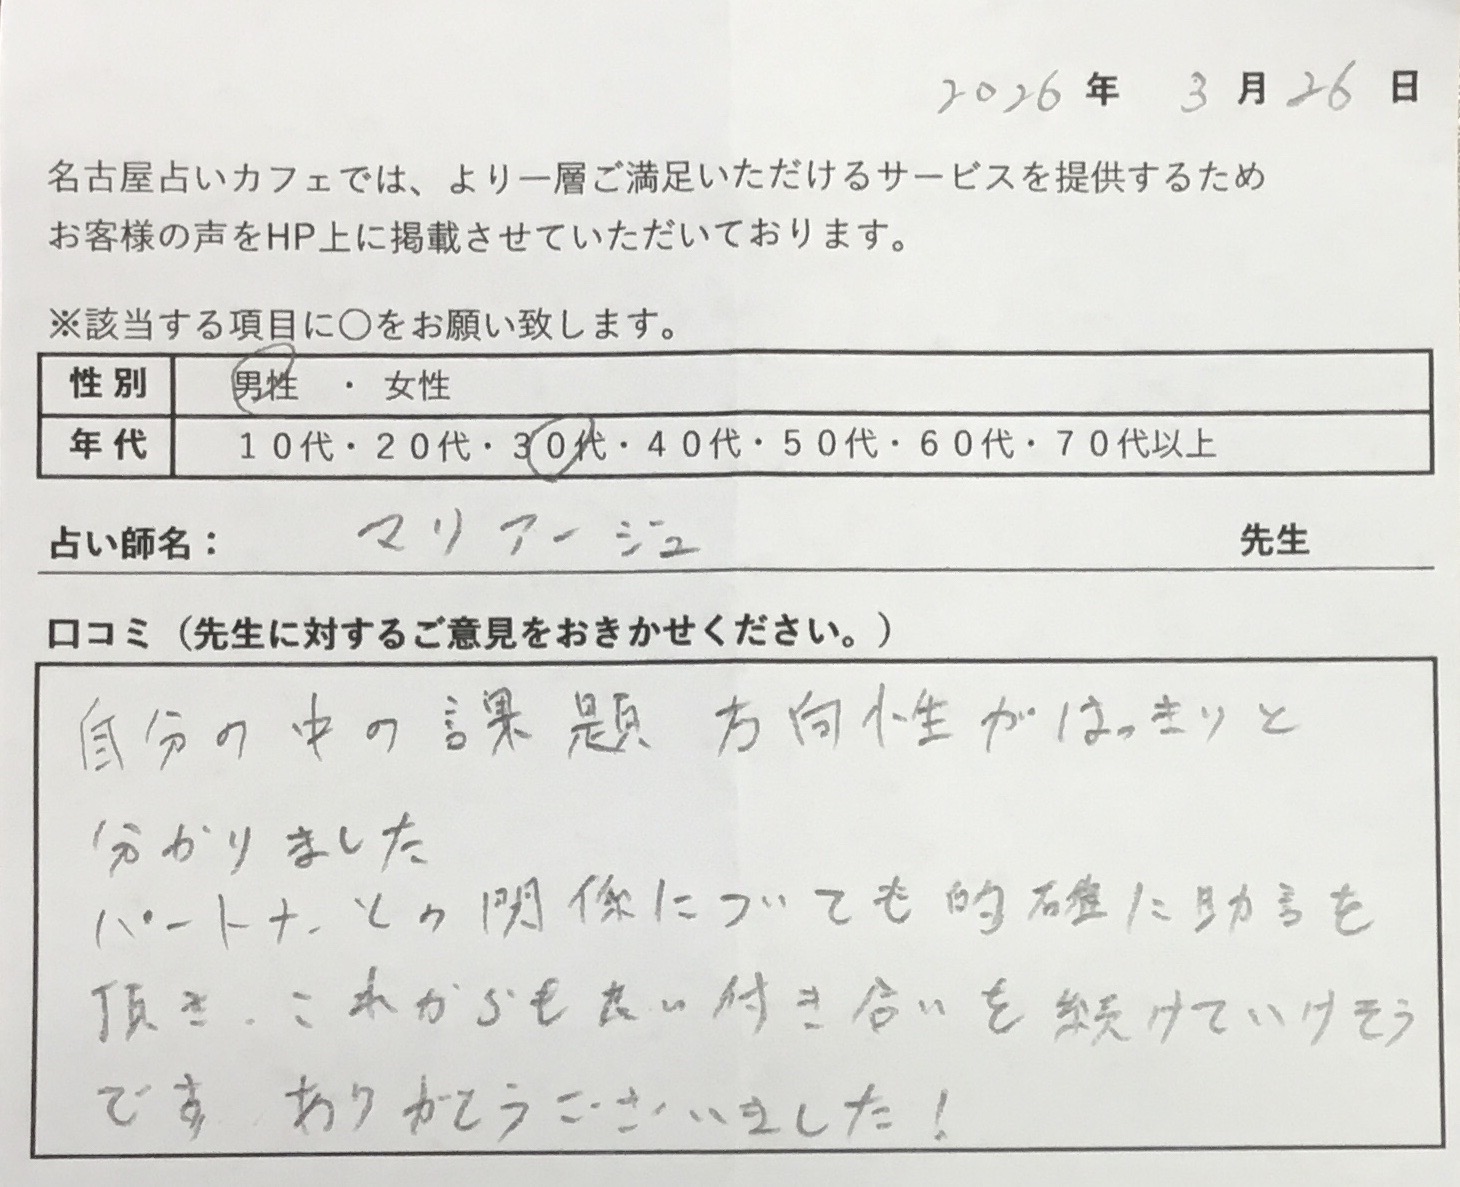 2026年 3月26日
名古屋占いカフェでは、より一層ご満足いただけるサービスを提供するため
お客様の声をHP上に掲載させていただいております。
※該当する項目に〇をお願い致します。
性別 男性 ・ 女性
年代 10代・20代・30代・40代・50代・60代・70代以上
占い師名： マリアージュ 先生
口コミ（先生に対するご意見をおきかせください。）
自分の中の課題 方向性がはっきりと
分かりました
パートナーとの関係についても的確に助言を
頂き、これからも良い付き合いを続けていけそう
です ありがとうございました！